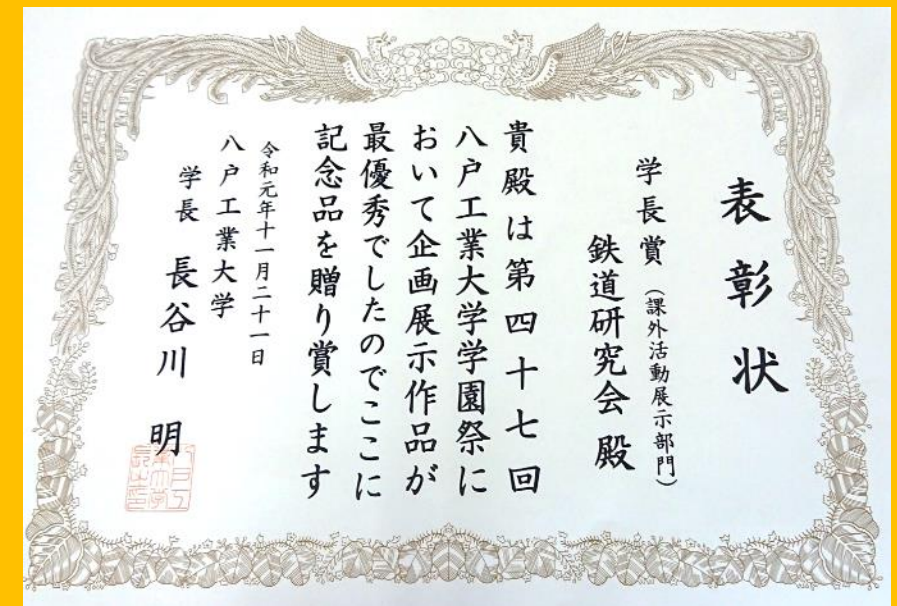 表彰状
学長賞（課外活動展示部門）
鉄道研究会 殿
貴殿は第四十七回
八戸工業大学学園祭に
おいて企画展示作品が
最優秀でしたのでここに
記念品を贈り賞します
令和元年十一月二十一日
八戸工業大学
学長 長谷川 明